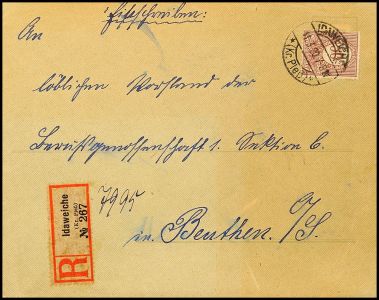 Eilschreiben:
An
löblichen Vorstand der
Berufsgenossenschaft 1. Sektion 6.
7995
in Beuthen O/S.
IDAWEICHE
* (Kr. Pleß) *
R
Idaweiche
(Kr. Pleß)
№ 267